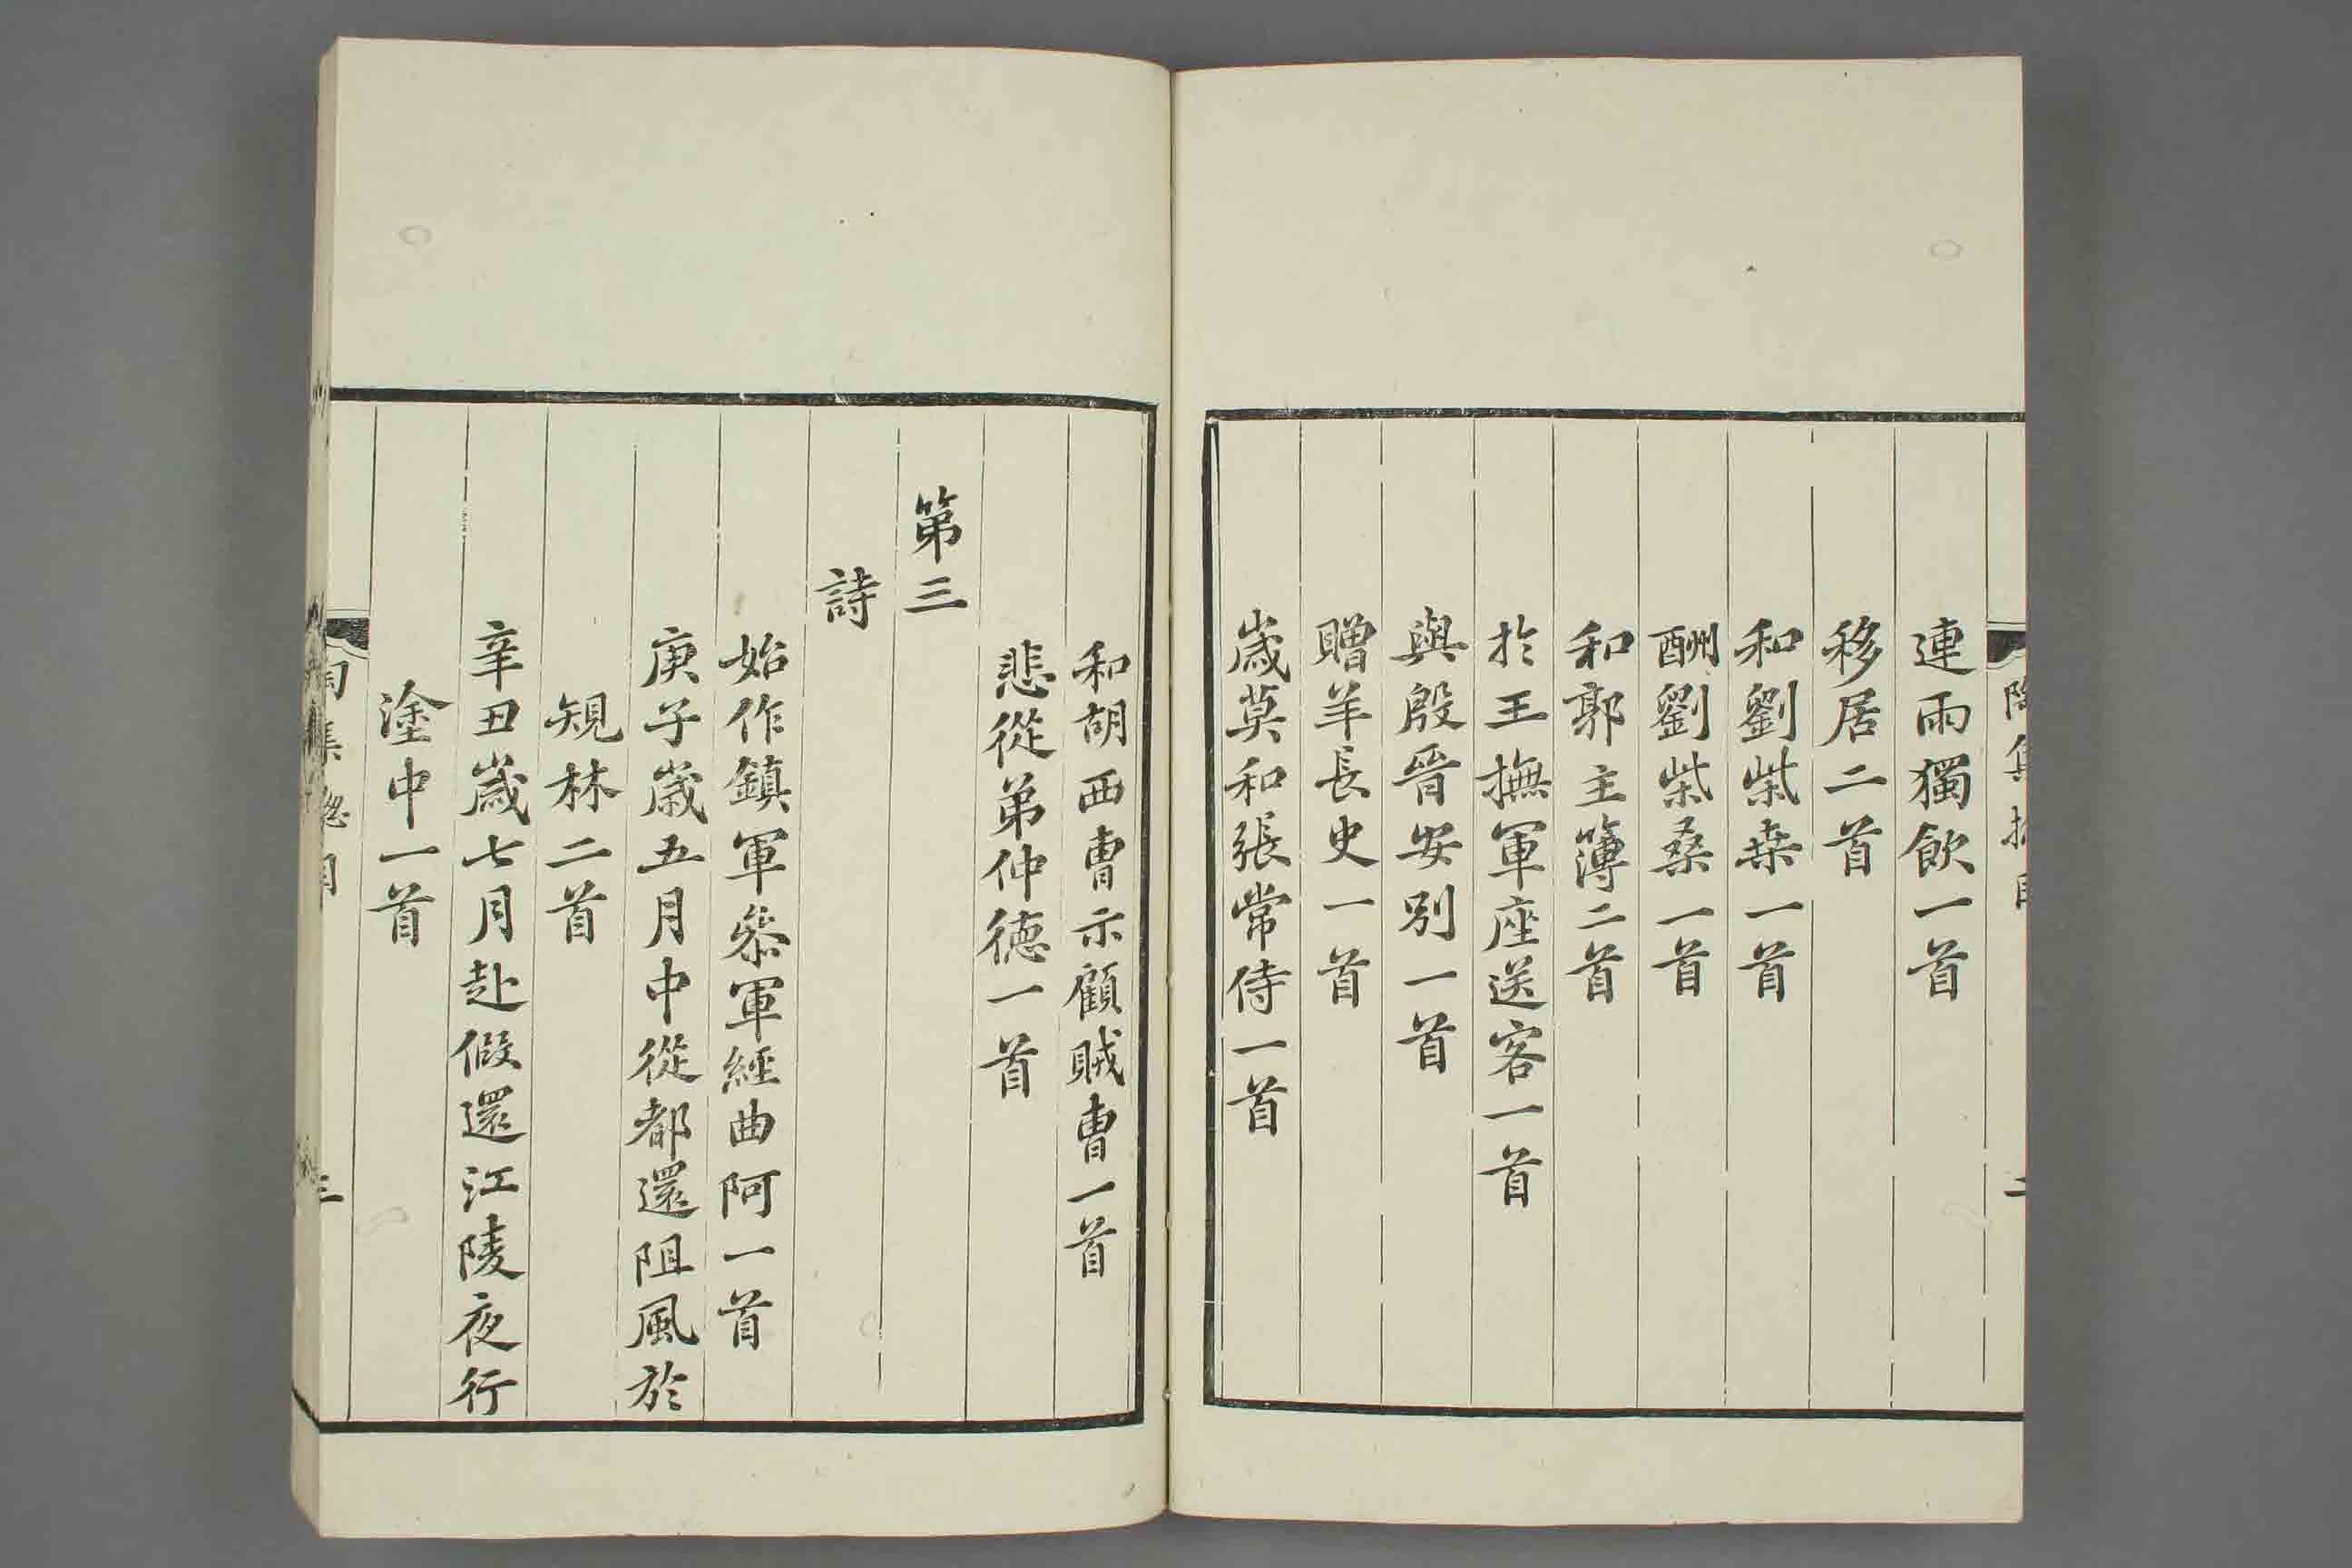 連雨獨飲一首
移居二首
和劉柴桒一首
酬劉柴桑一首
和郭主簿二首
於王撫軍座送客一首
與殷晉安別一首
贈羊長史一首
歳莫和張常侍一首
和胡西曹示顧賊曹一首
悲從弟仲徳一首
第三
詩
始作鎮軍叅軍經曲阿一首
庚子歳五月中從都還阻風於
規林二首
辛丑歳七月赴假還江陵夜行
塗中一首
陶集總目
三